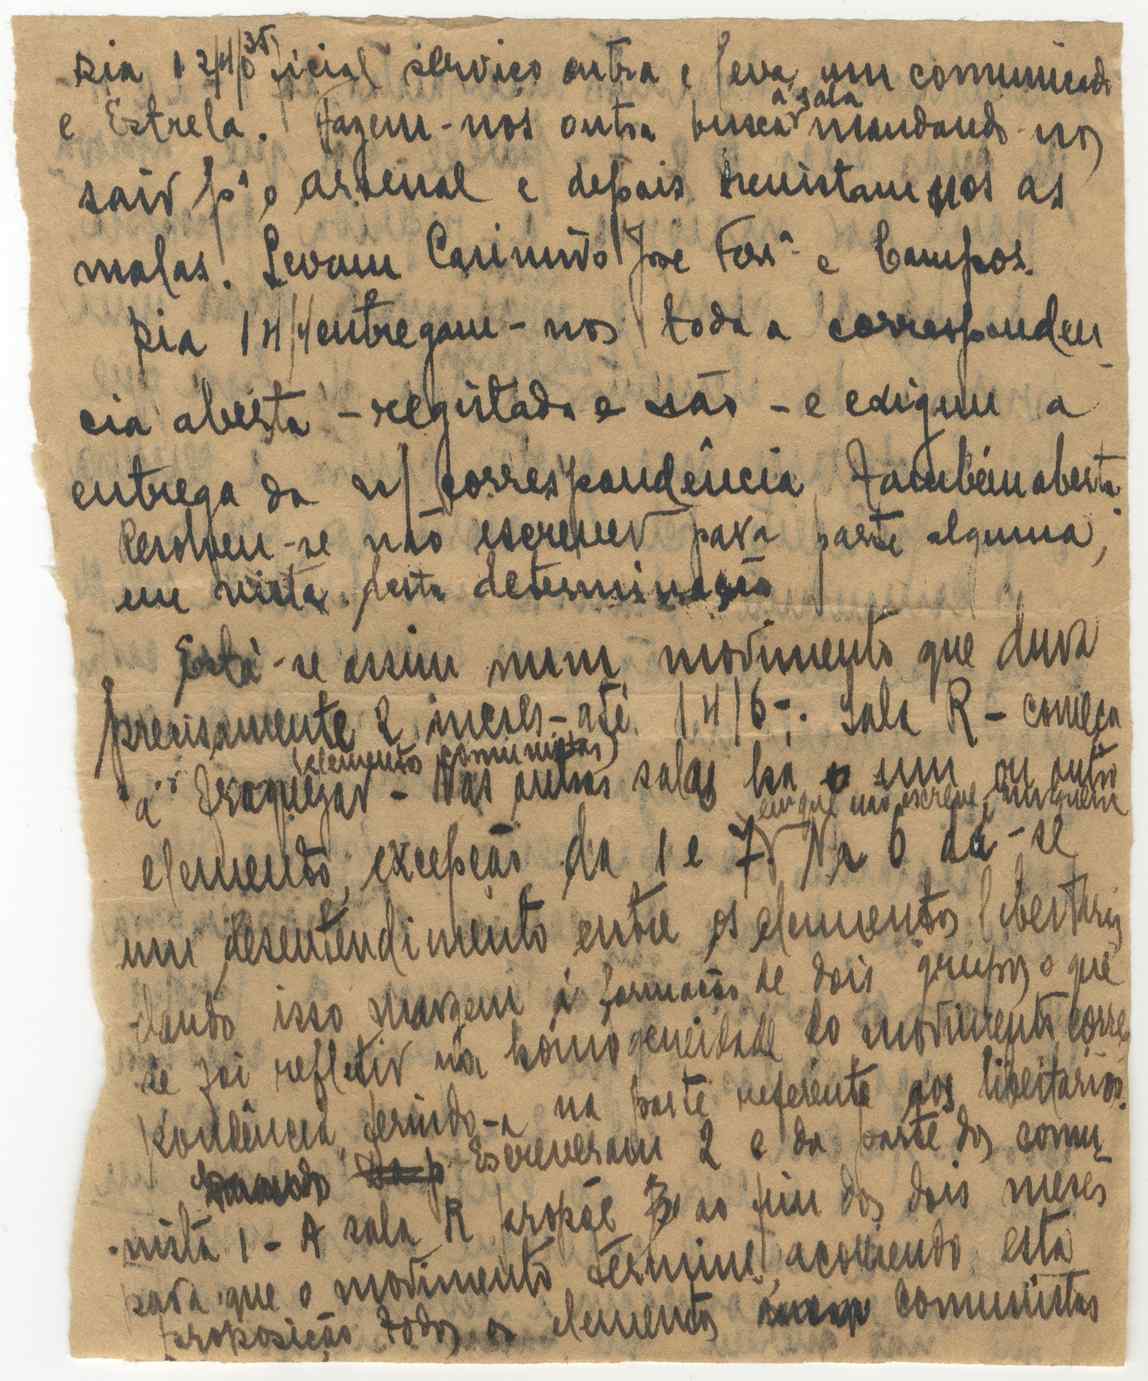 Dia 12/4/35, oficial serviço entra e leva um comunicado
e Estrela. Fazem-nos outra busca à sala mandando-nos
sair p.ª o arsenal e depois revistam-nos as
malas. Levam Casimiro José Ferrª e Campos.
Dia 14/4 entregam-nos toda a corresponden-
cia aberta - registada e não - e exigem a
entrega da n/ correspondência, Também aberta
Resolveu-se não escrever para parte alguma,
em vista desta determinação
Está-se assim num movimento que dura
precisamente 2 meses - até 14/6 -. Sala R - começa
(elementos comunistas)
a fraquejar - Nas outras salas ha um ou outro
em que não escreve ninguem
elemento, excepção da 1 e 7. Na 6 dá-se
um desentendimento entre os elementos libertarios
dando isso margem á formação de dois grupos o que
se foi refletir na homogeneidade do movimento corres
pondência, ferindo-a na parte referente aos libertarios.
Escreveram 2 e da parte dos comu-
nista 1 - A sala R propõe ao fim dos dois meses
para que o movimento termine, acorrendo esta
proposição todos os elementos comunistas